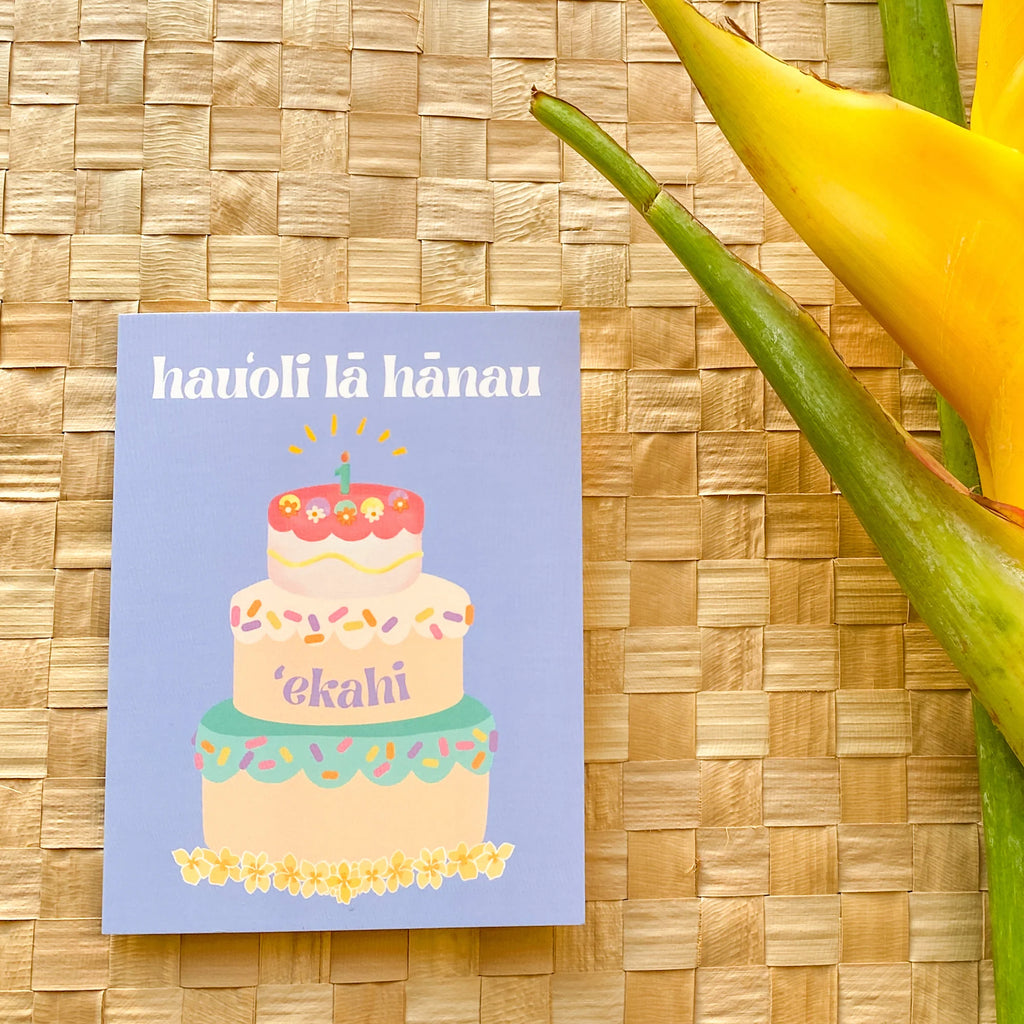 hauʻoli lā hānau
1
ʻekahi